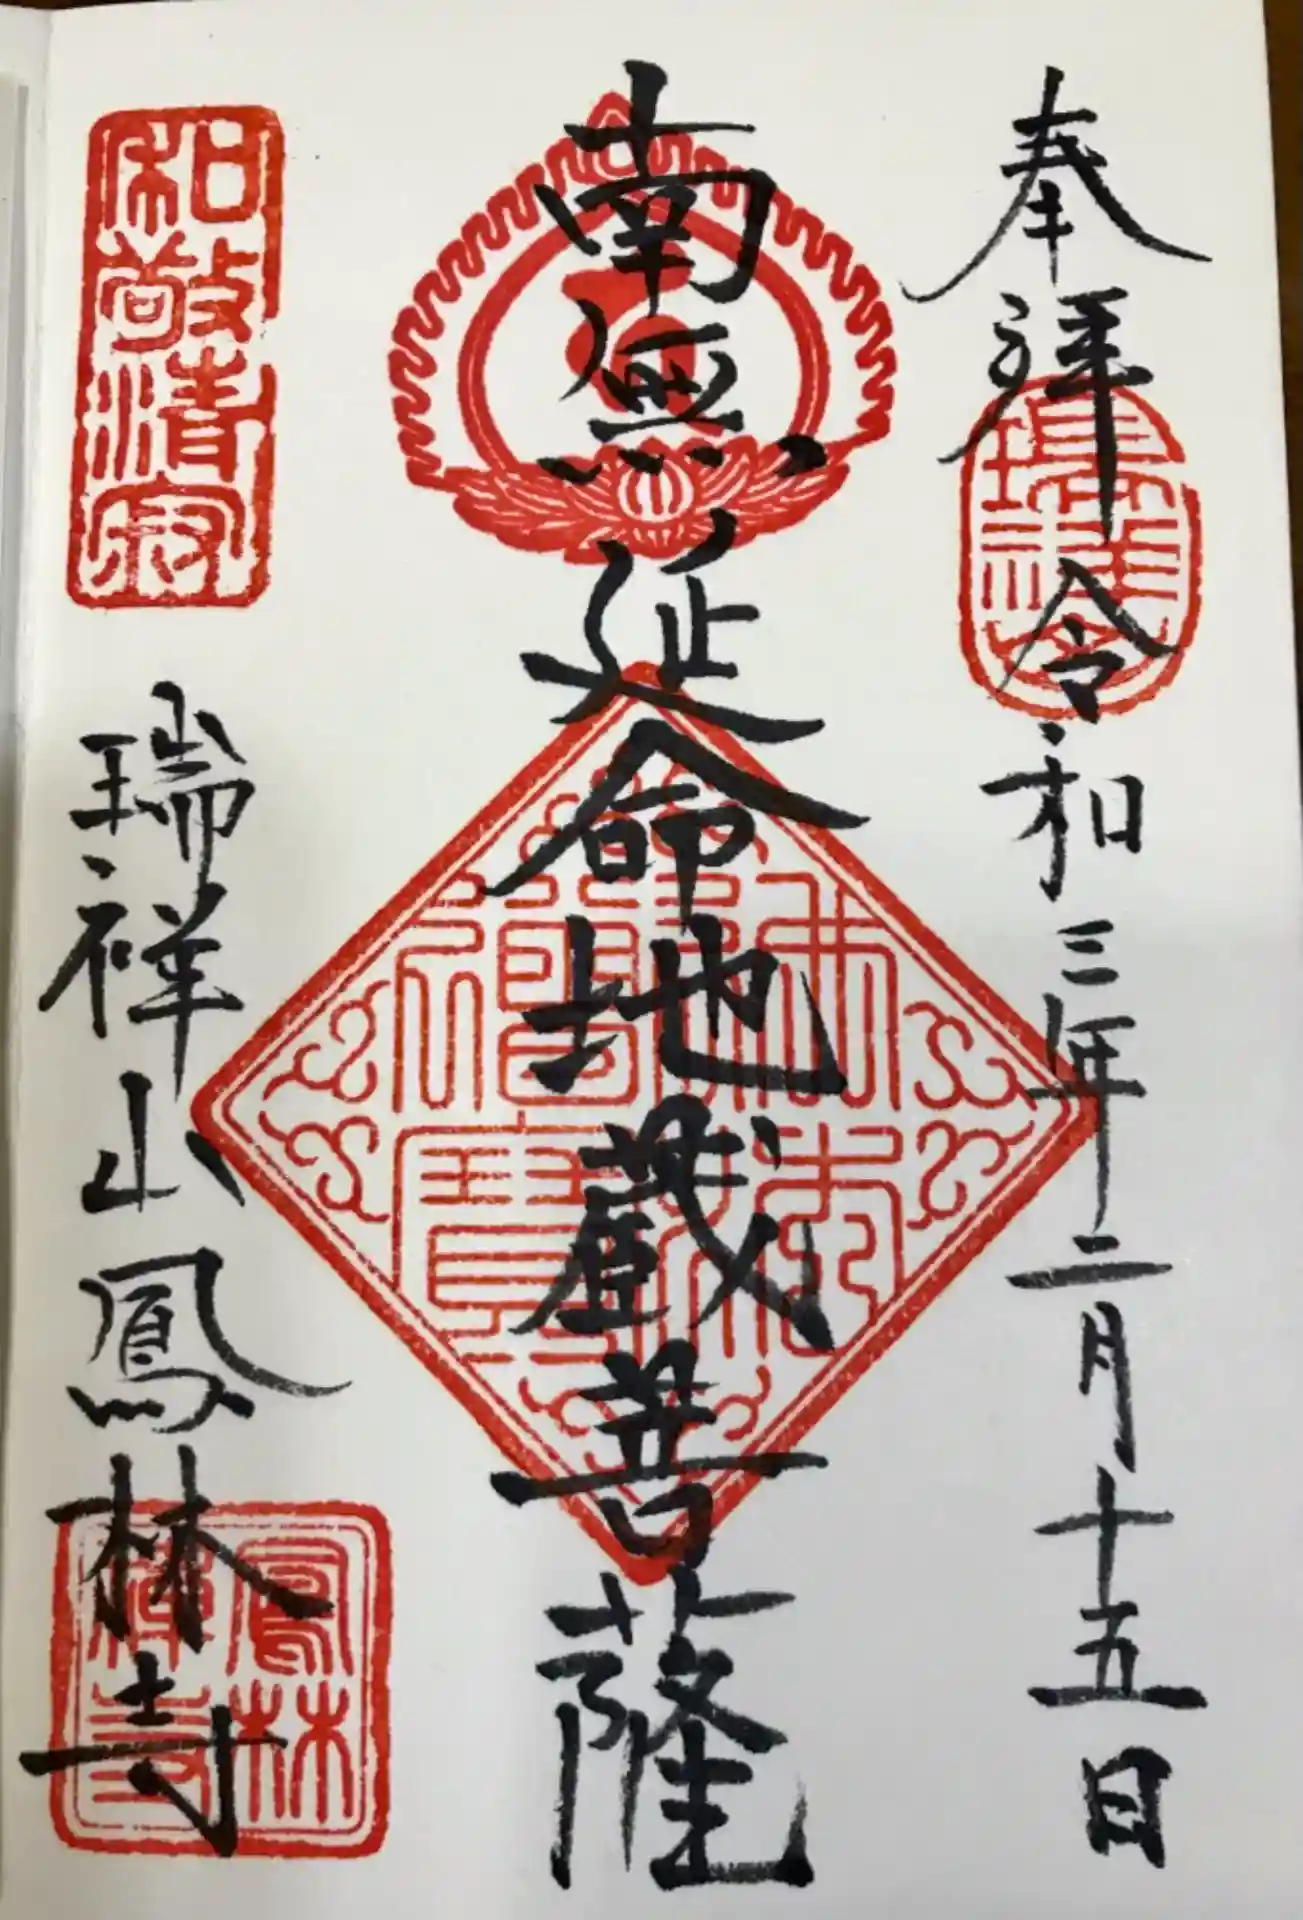 奉拝 令和三年二月十五日
瑞祥山
南無延命地蔵菩薩
和敬清寂
瑞祥山鳳林寺
鳳林禅寺